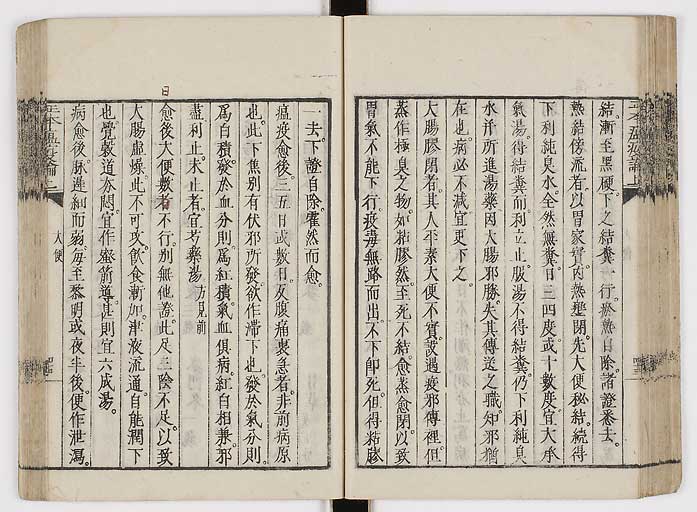 結漸至黑硬下之結糞一行瘀熱自除諸證悉去。
熱結傍流者以胃家實內熱壅閉先大便秘結續得
下利純臭水全然無糞日三四度或十數度宜大承
氣湯得結糞而利立止服湯不得結糞仍下利純臭
水并所進湯藥因大腸邪勝失其傳送之職知邪猶
在也病必不減宜更下之。
大腸膠閉者其人平素大便不實設遇疫邪傳裡但
蒸作極臭之物如粘膠然至死不結愈蒸愈閉以致
胃氣不能下行疫毒無路而出不下即死但得粘膠
一去下證自除霍然而愈。
瘟疫愈後三五日或數日反腹痛裏急者非前病原
也此下焦別有伏邪所發欲作滯下也發於氣分則
爲白積發於血分則爲紅積氣血俱病紅白相兼邪
盡利止未止者宜芍藥湯方見前
愈後大便數日不行別無他證此足三陰不足以致
大腸虛燥此不可攻飲食漸加津液流通自能潤下
也覺穀道夯悶宜作蜜煎導甚則宜六成湯。
病愈後脉遲細而弱每至黎明或夜半後便作泄瀉。
大便
日